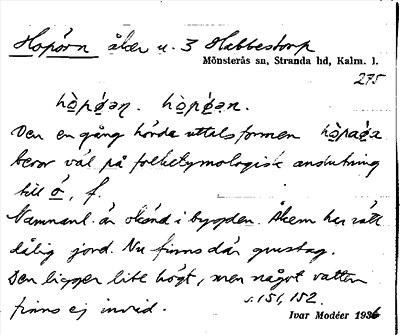 Hopörn åker u. 3 Habbestorp
Mönsterås sn, Stranda hd, Kalm. l.
275
Den en gång hörda uttalsformen
beror väl på folketymologisk anslutning
till ö, f.
Namnanl. är okänd i bygden. Åkern har rätt
dålig jord. Nu finns där grustag.
Den ligger lite högt, men något vatten
finns ej invid.
s. 151, 152.
Ivar Modéer 1936